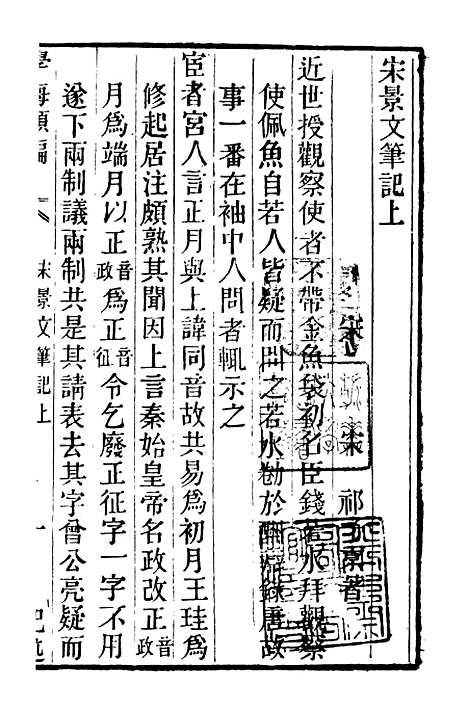 宋景文筆記上
宋 宋 祁 子京著
近世授觀察使者不帶金魚袋初名臣錢若水拜觀察
使佩魚自若人皆疑而問之若水勌於酬錄唐故
事一番在袖中人問者輒示之
宦者宮人言正月與上諱同音故共易為初月王珪為
修起居注頗熟其聞因上言秦始皇帝名政改正音政
月為端月以正音政為正音征令乞廢正征字一字不用
遂下兩制議兩制共是其請表去其字曾公亮疑而
學海類編 宋景文筆記上 一